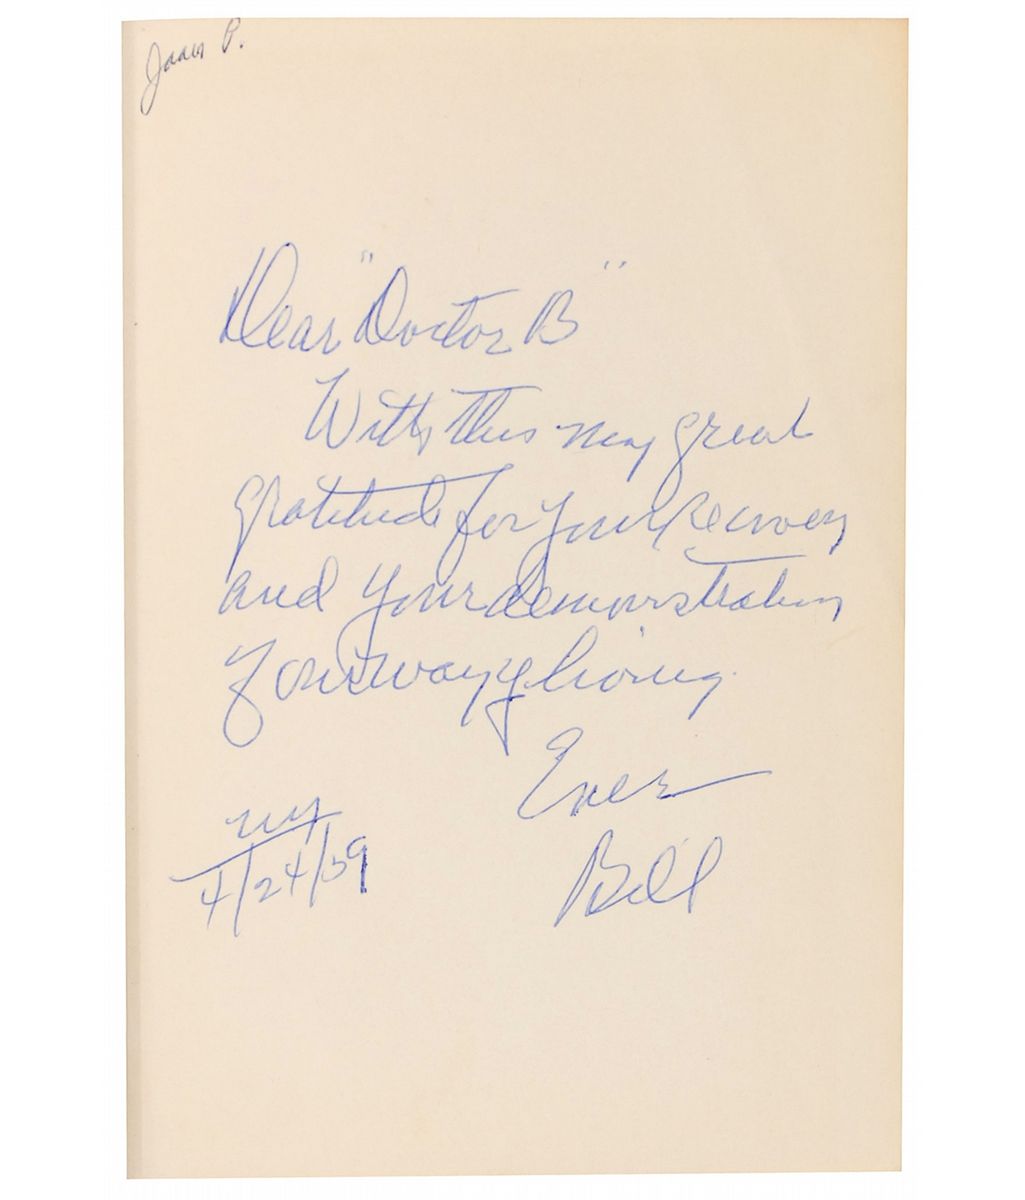 P.
Dear "Doctor B"
With this my great
gratitude for your recovery
and your demonstration
of our way of living.
Ever
Bill
NY
4/24/59